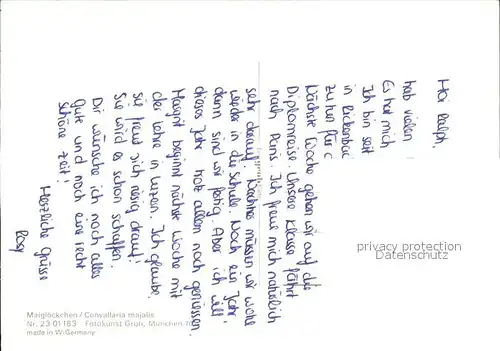 Hoi Ralph,
hab vielen
Es hat mich
Ich bin seit
in Rickenbac
zu tun für c
Nächste Woche gehen wir auf die
Diplomreise. Unsere Klasse fährt
nach Paris. Ich freue mich natürlich
sehr darauf! Nachher müssen wir wohl
wieder in die Schule. Noch ein Jahr,
dann sind wir fertig. Aber ich will
dieses Jahr trotz allem noch geniessen.
Margrit beginnt nächste Woche mit
der Lehre in Luzern. Ich glaube,
sie freut sich riesig darauf!
Sie wird es schon schaffen.
Dir wünsche ich noch alles
gute und noch eine recht
schöne Zeit!
Herzliche Grüsse
Rosy
privacy protection
www.oldthing.com
Maiglöckchen / Convallaria majalis
Nr. 23 01183 Fotokunst Groh, München
made in W-Germany